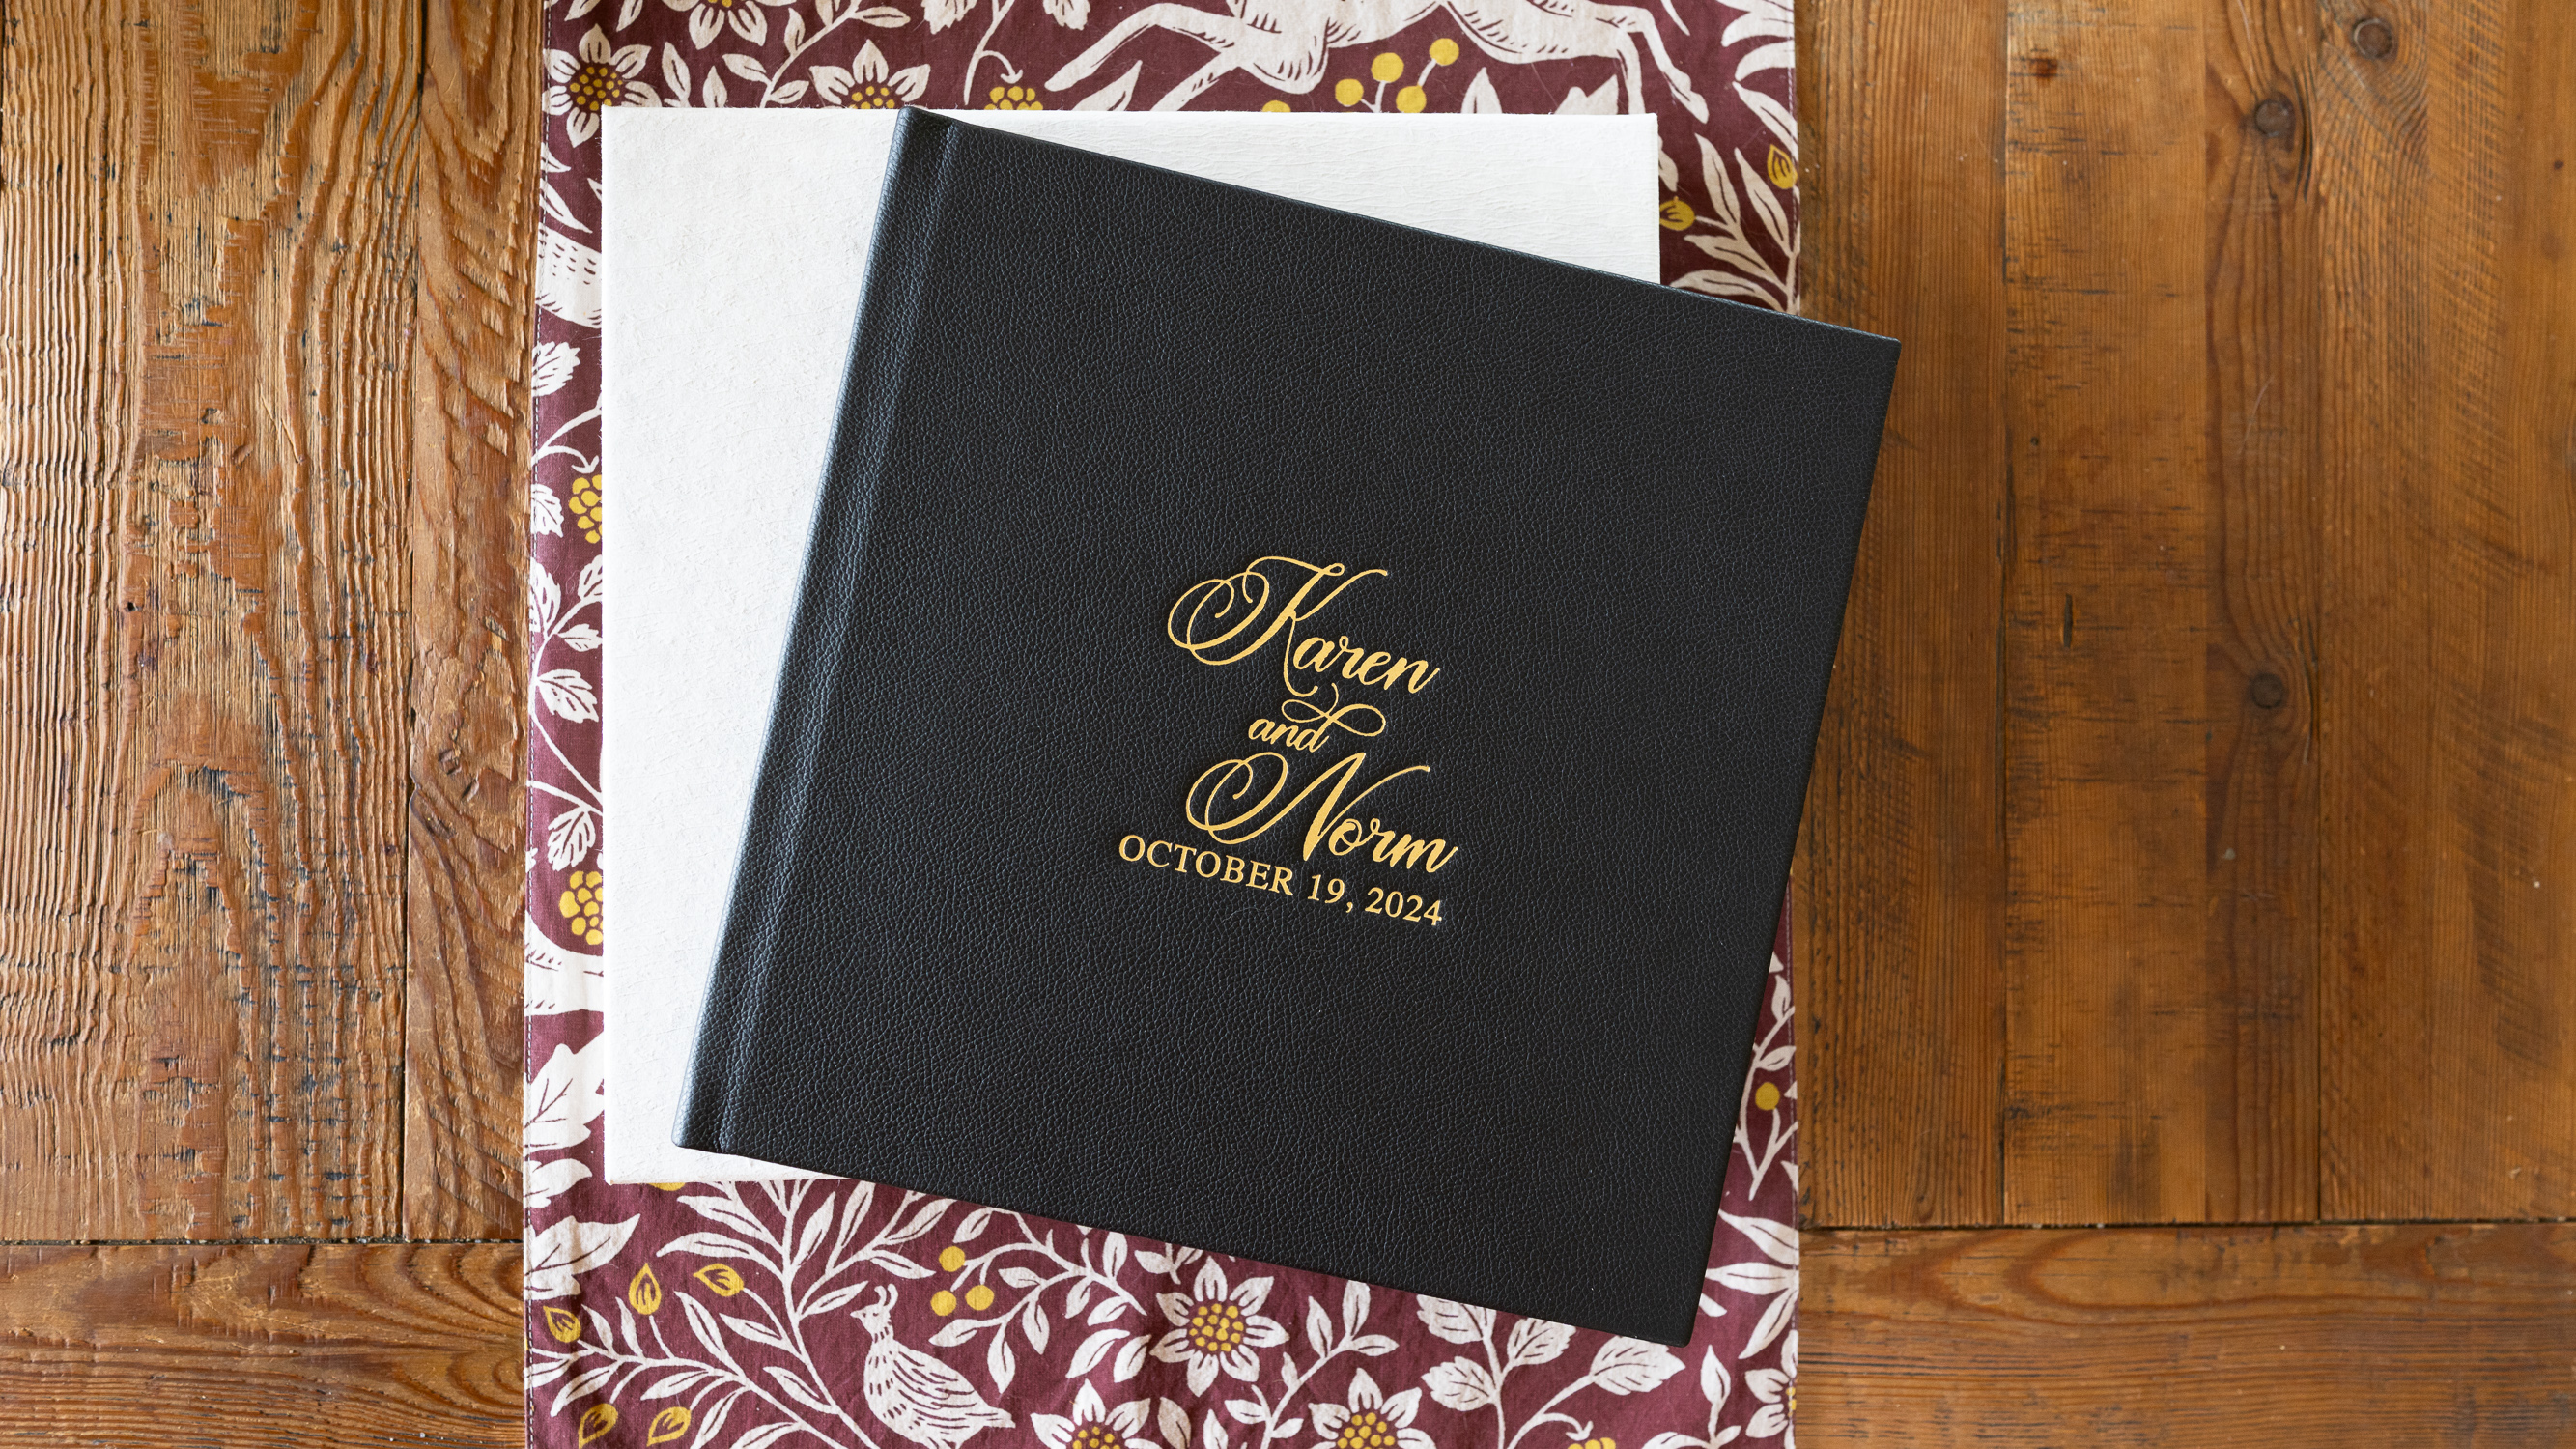 Karen
and
Norm
OCTOBER 19, 2024